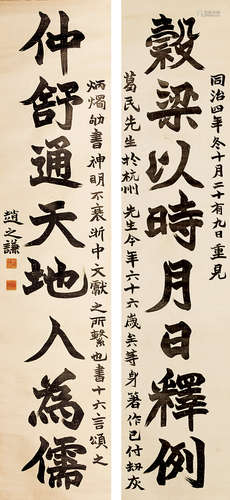 同治四年冬十月二十有九日重見
穀梁以時月日釋例
葛民先生於杭州 先生今年六十六歲矣等身著作已付劫灰
炳燭劬書神明不衰浙中文獻之所繫也書十六言頌之
仲舒通天地人為儒
趙之謙